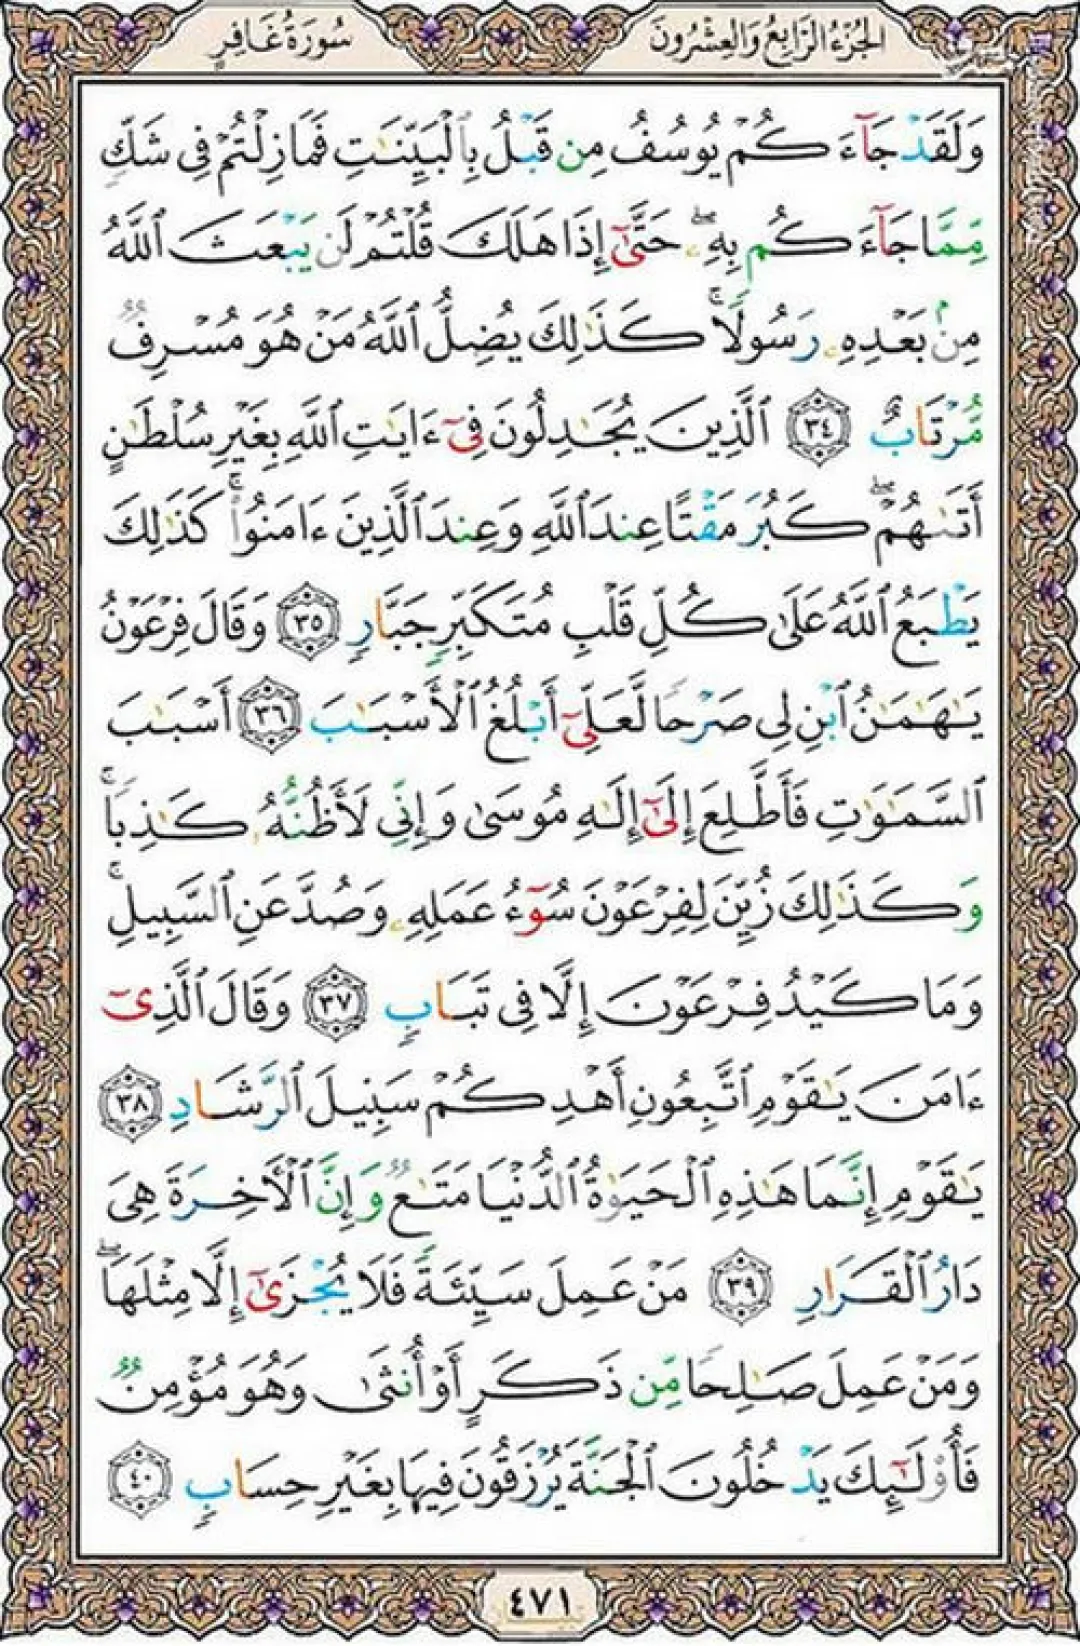 الجزء الرابع والعشرون
سورة غافر
وَلَقَدْ جَآءَكُمْ يُوسُفُ مِن قَبْلُ بِٱلْبَيِّنَٰتِ فَمَا زِلْتُمْ فِى شَكٍّ
مِّمَّا جَآءَكُم بِهِۦ ۖ حَتَّىٰٓ إِذَا هَلَكَ قُلْتُمْ لَن يَبْعَثَ ٱللَّهُ
مِنۢ بَعْدِهِۦ رَسُولًا ۚ كَذَٰلِكَ يُضِلُّ ٱللَّهُ مَنْ هُوَ مُسْرِفٌ
مُّرْتَابٌ ٣٤ ٱلَّذِينَ يُجَٰدِلُونَ فِىٓ ءَايَٰتِ ٱللَّهِ بِغَيْرِ سُلْطَٰنٍ
أَتَىٰهُمْ ۖ كَبُرَ مَقْتًا عِندَ ٱللَّهِ وَعِندَ ٱلَّذِينَ ءَامَنُوا۟ ۚ كَذَٰلِكَ
يَطْبَعُ ٱللَّهُ عَلَىٰ كُلِّ قَلْبِ مُتَكَبِّرٍ جَبَّارٍ ٣٥ وَقَالَ فِرْعَوْنُ
يَٰهَٰمَٰنُ ٱبْنِ لِى صَرْحًا لَّعَلِّىٓ أَبْلُغُ ٱلْأَسْبَٰبَ ٣٦ أَسْبَٰبَ
ٱلسَّمَٰوَٰتِ فَأَطَّلِعَ إِلَىٰٓ إِلَٰهِ مُوسَىٰ وَإِنِّى لَأَظُنُّهُۥ كَٰذِبًا ۚ
وَكَذَٰلِكَ زُيِّنَ لِفِرْعَوْنَ سُوٓءُ عَمَلِهِۦ وَصُدَّ عَنِ ٱلسَّبِيلِ ۚ
وَمَا كَيْدُ فِرْعَوْنَ إِلَّا فِى تَبَابٍ ٣٧ وَقَالَ ٱلَّذِىٓ
ءَامَنَ يَٰقَوْمِ ٱتَّبِعُونِ أَهْدِكُمْ سَبِيلَ ٱلرَّشَادِ ٣٨
يَٰقَوْمِ إِنَّمَا هَٰذِهِ ٱلْحَيَوٰةُ ٱلدُّنْيَا مَتَٰعٌ وَإِنَّ ٱلْأَخِرَةَ هِىَ
دَارُ ٱلْقَرَارِ ٣٩ مَنْ عَمِلَ سَيِّئَةً فَلَا يُجْزَىٰٓ إِلَّا مِثْلَهَا ۖ
وَمَنْ عَمِلَ صَٰلِحًا مِّن ذَكَرٍ أَوْ أُنثَىٰ وَهُوَ مُؤْمِنٌ
فَأُو۟لَٰٓئِكَ يَدْخُلُونَ ٱلْجَنَّةَ يُرْزَقُونَ فِيهَا بِغَيْرِ حِسَابٍ ٤٠
٤٧١